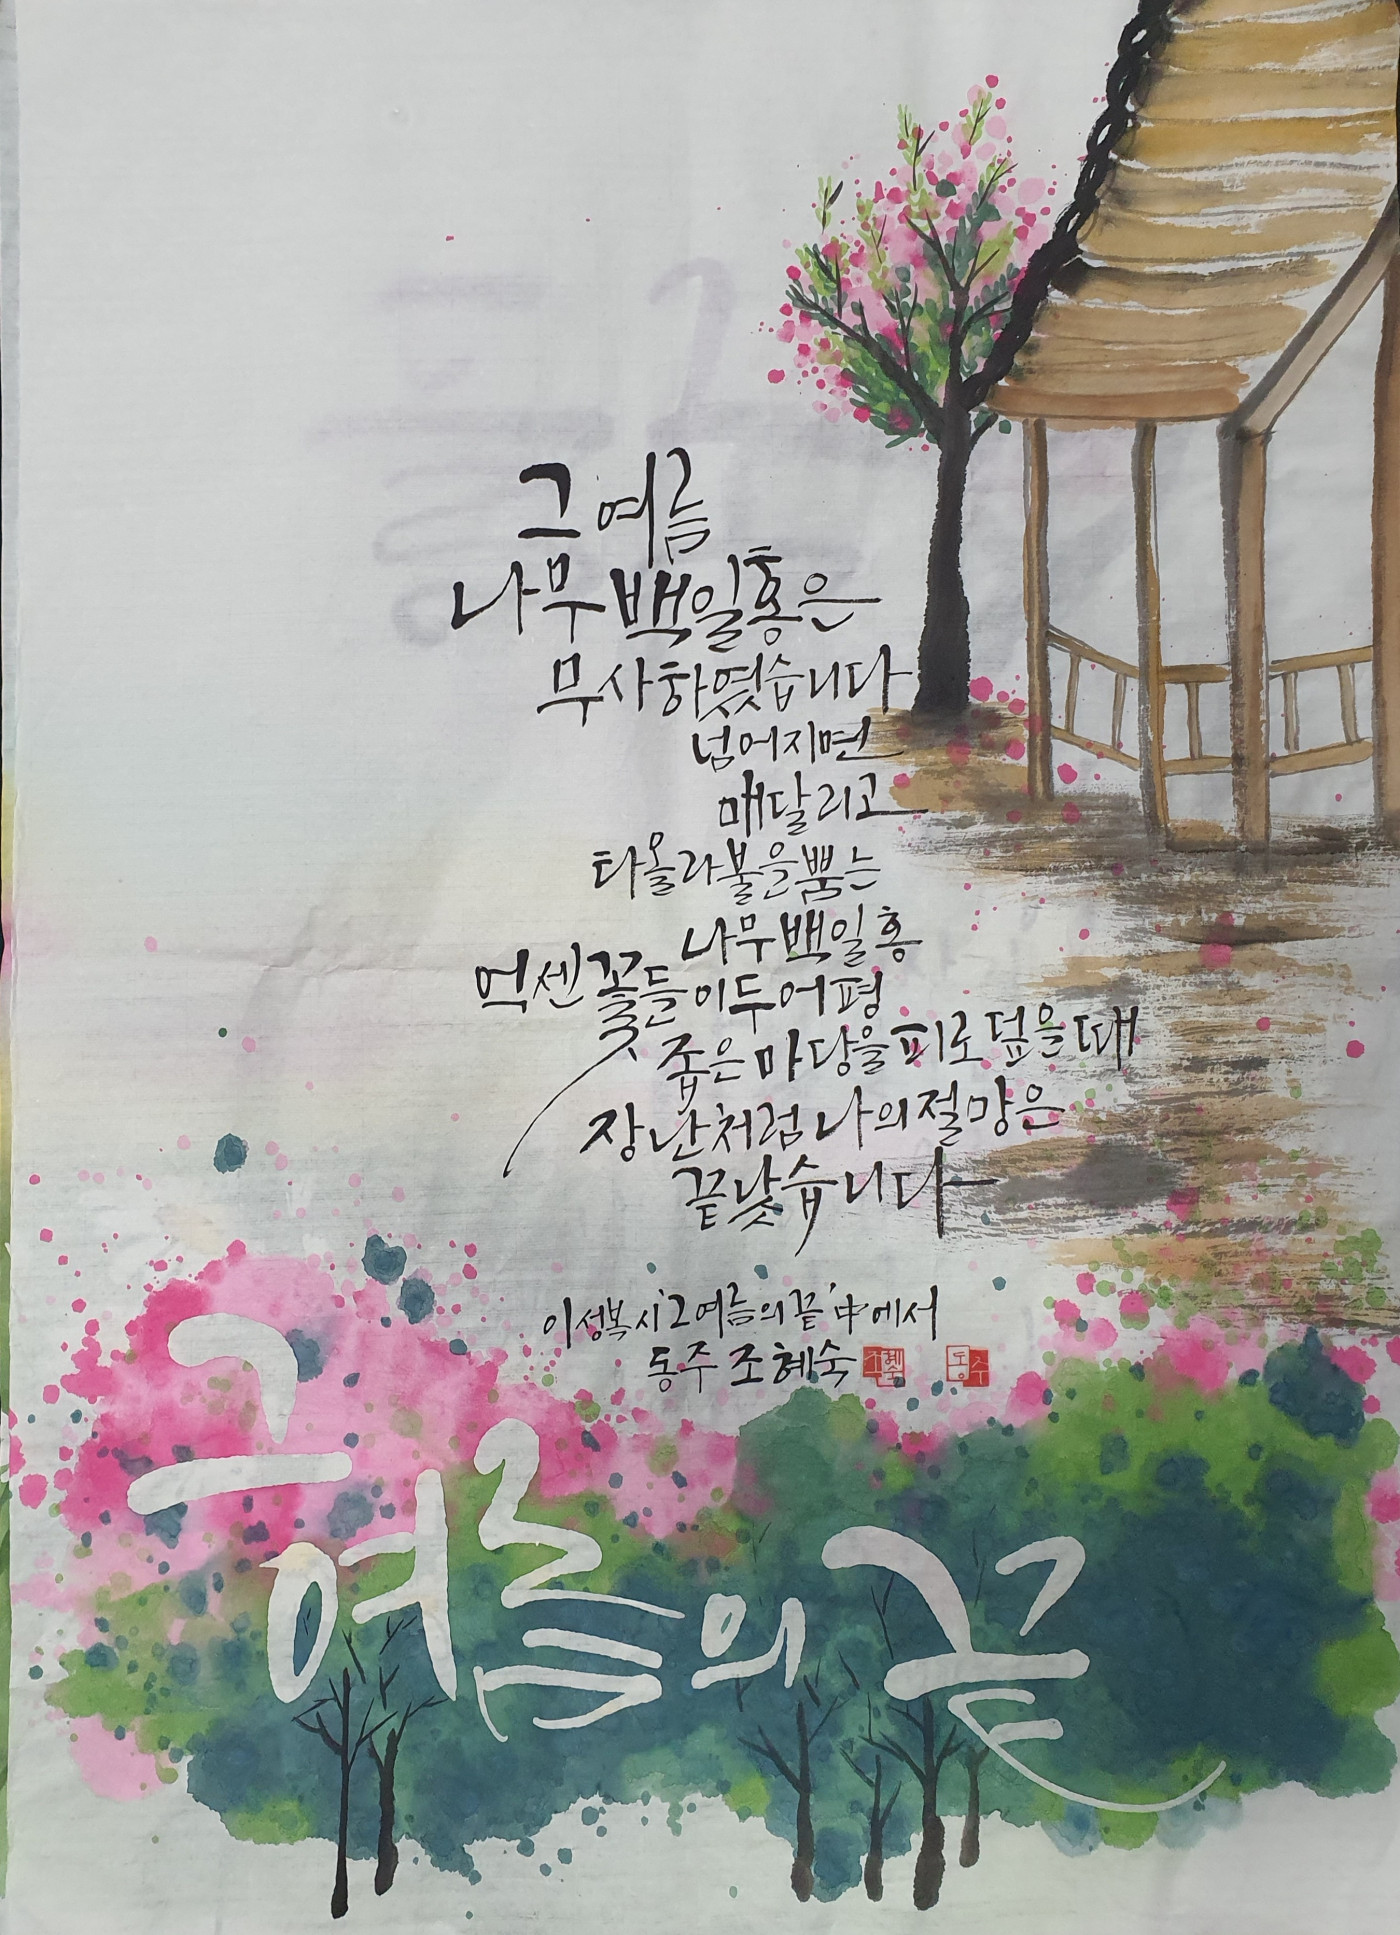 그 여름
나무 백일홍은
무사하였습니다
넘어지면
매달리고
타올라 불을 뿜는
나무 백일홍
억센 꽃들이 두어 평
좁은 마당을 피로 덮을 때
장난처럼 나의 절망은
끝났습니다
이성복 시 '그 여름의 끝' 中에서
동주 조혜숙
동주
그 여름의 끝